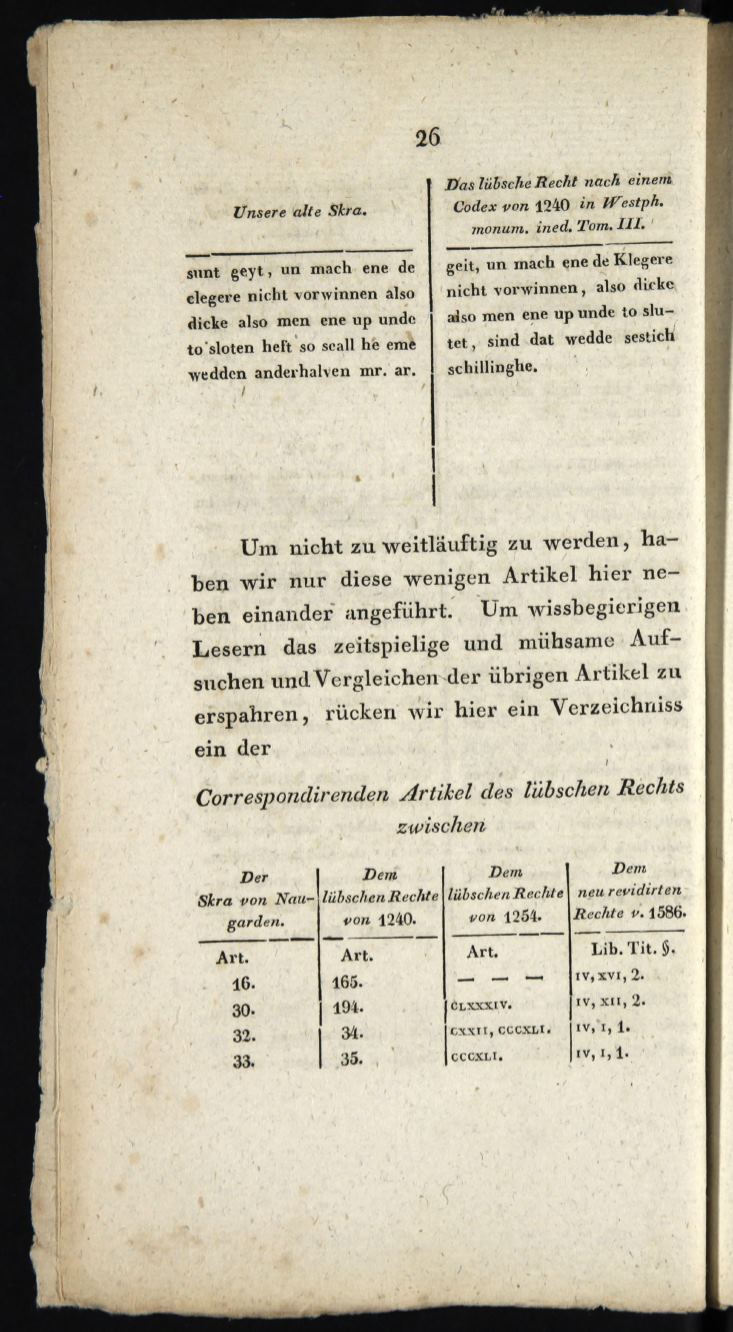 26
Unsere alte Skra.
sunt geyt, un mach ene de
clegere nicht vorwinnen also
dicke also men ene up unde
to sloten heft so scall he eme
wedden anderhalven mr. ar.
Das lübsche Recht nach einem
Codex von 1240 in Westph.
monum. ined. Tom. III.
geit, un mach ene de Klegere
nicht vorwinnen, also dicke
also men ene up unde to slu-
tet, sind dat wedde sestich
schillinghe.
Um nicht zu weitläuftig zu werden, ha-
ben wir nur diese wenigen Artikel hier ne-
ben einander angeführt. Um wissbegierigen
Lesern das zeitspielige und mühsame Auf-
suchen und Vergleichen der übrigen Artikel zu
erspahren, rücken wir hier ein Verzeichniss
ein der
Correspondirenden Artikel des lübschen Rechts
zwischen
Der Dem Dem Dem
Skra von Nau- lübschen Rechte lübschen Rechte neu revidirten
garden. von 1240. von 1254. Rechte v. 1586.
Art. Art. Art. Lib. Tit. §.
16. 165. — — — IV, XVI, 2.
30. 194. CLXXXIV. IV, XII, 2.
32. 34. CXXII, CCCXLI. IV, I, 1.
33. 35. CCCXLI. IV, I, 1.